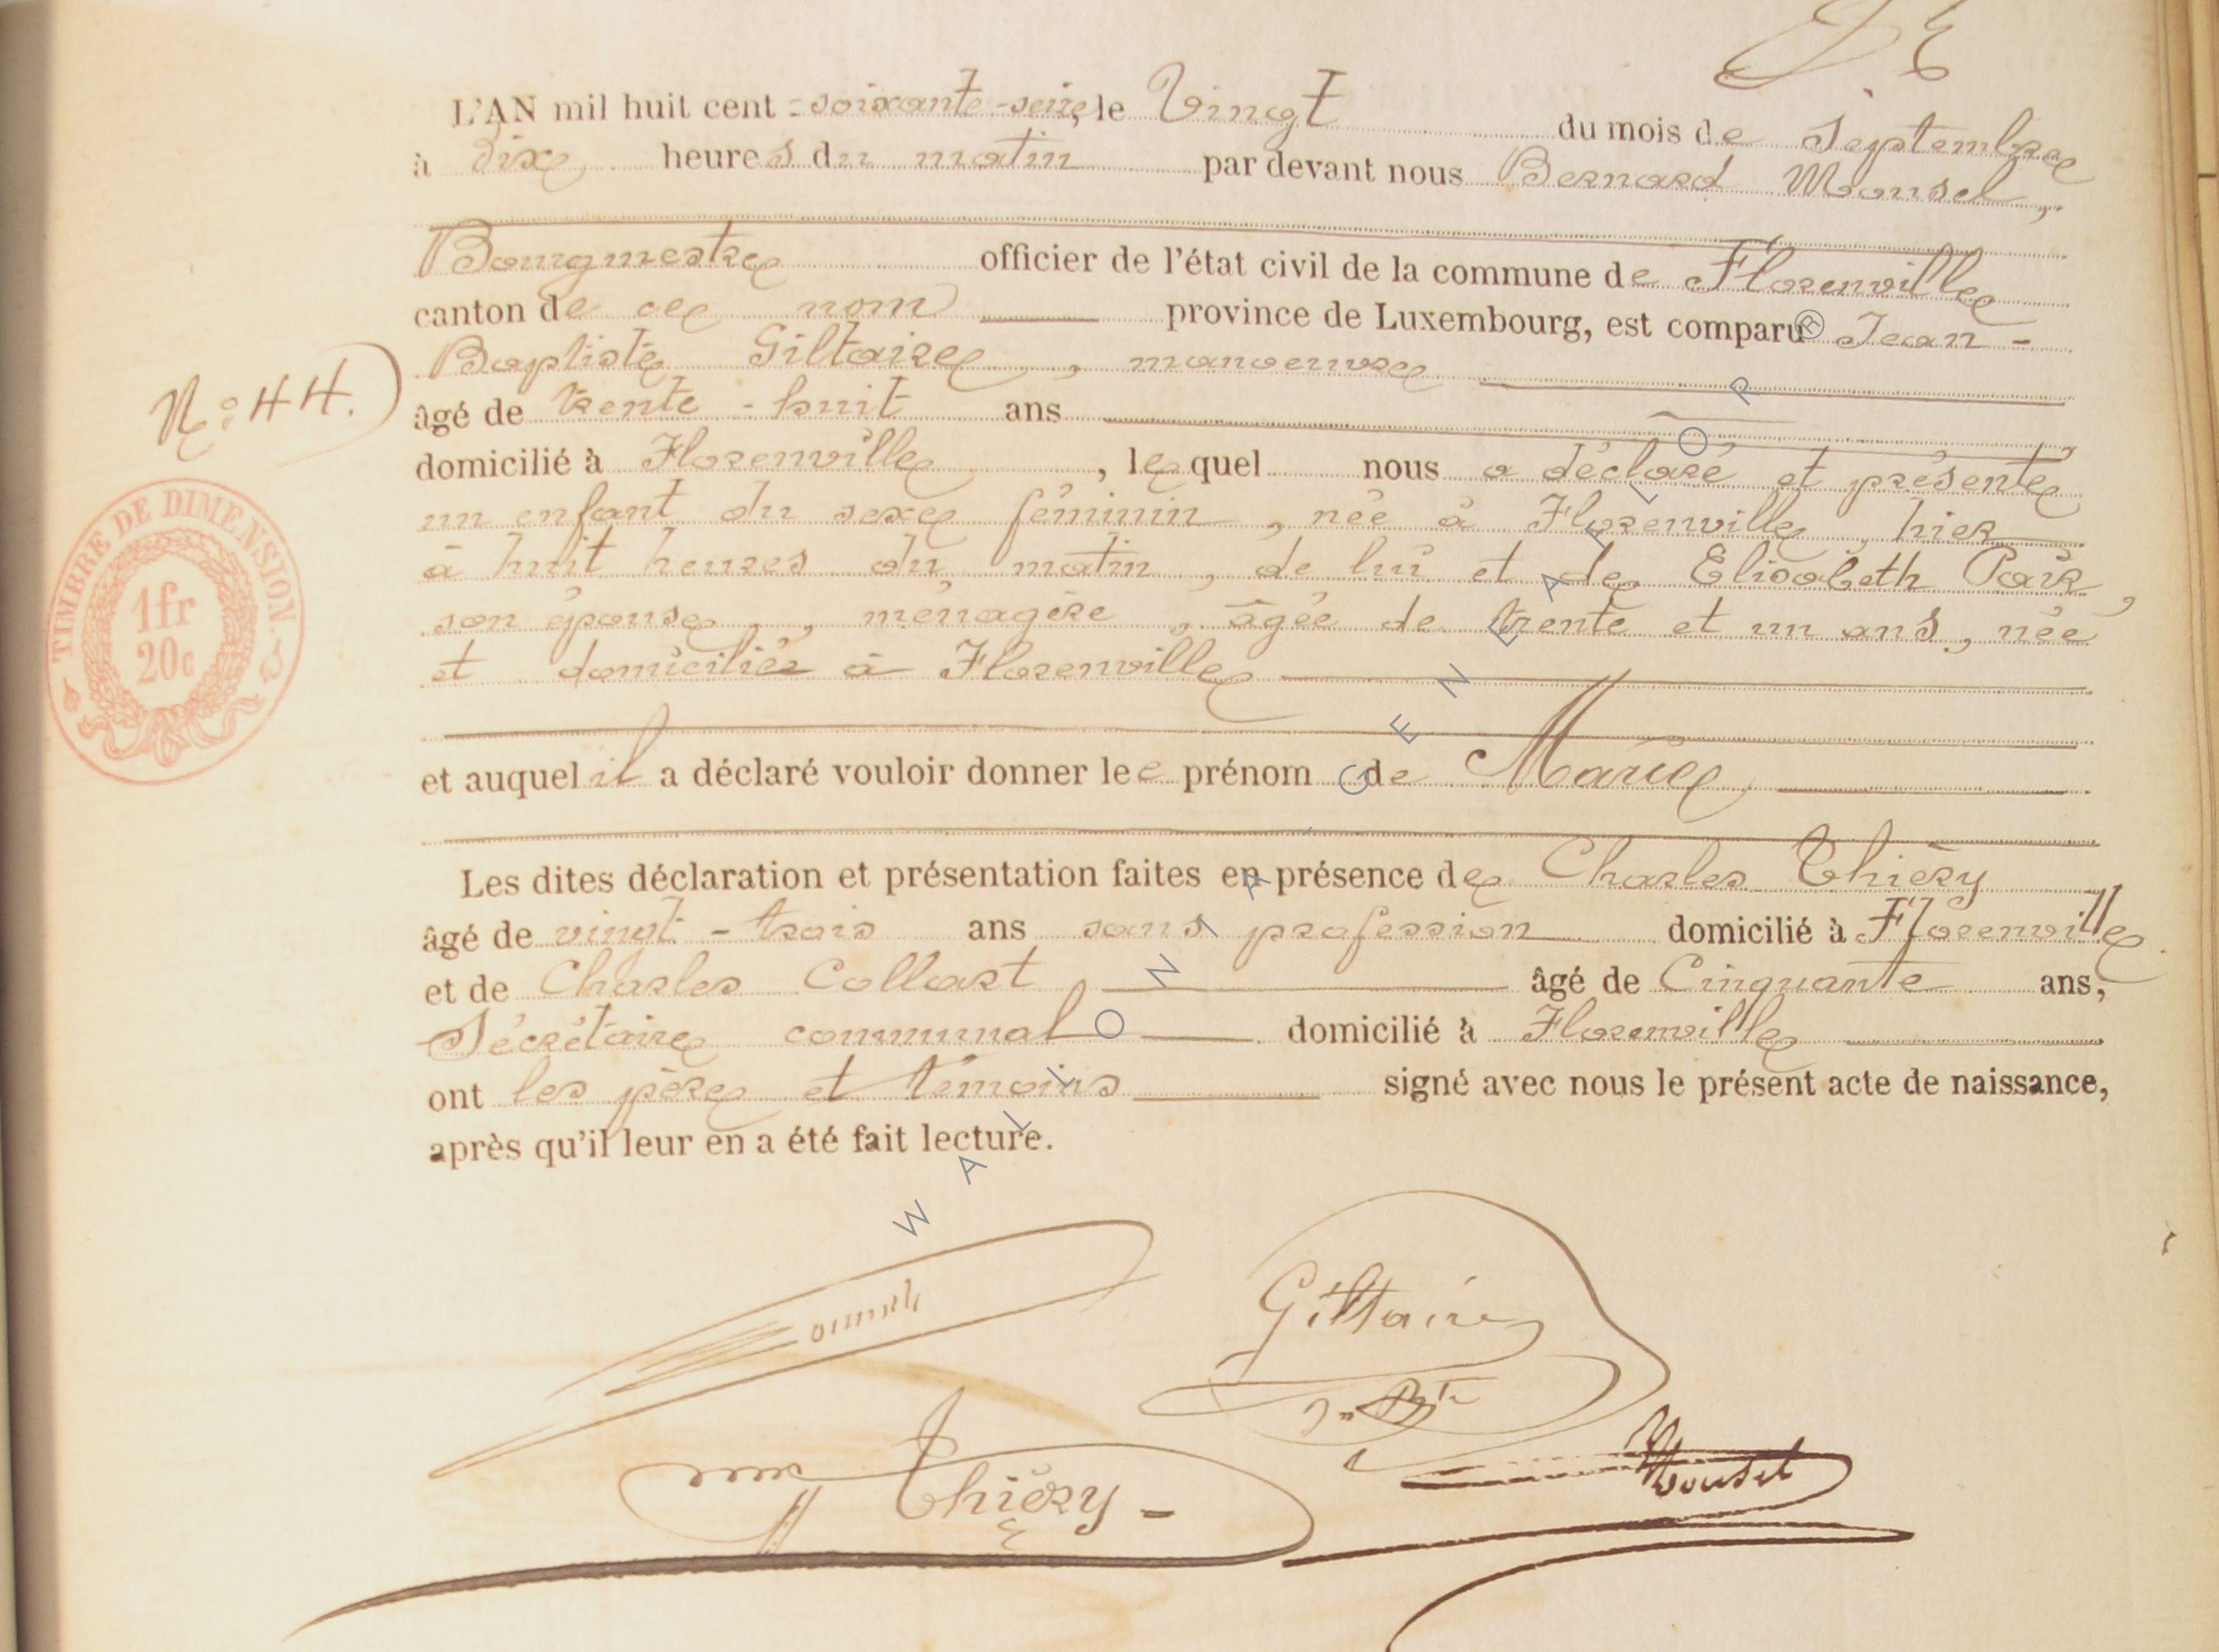 L'AN mil huit cent soixante-seize, le Vingt du mois de Septembre
à Dix heures du matin par devant nous Bernard Mousel,
Bourgmestre officier de l'état civil de la commune de Florenville
canton de ce nom province de Luxembourg, est comparu Jean-
Baptiste Giltaire, manoeuvre
N° 44.
âgé de trente-huit ans
domicilié à Florenville, lequel nous a déclaré et présenté
un enfant du sexe féminin, née à Florenville, hier
à huit heures du matin, de lui et de Elisabeth
son épouse, ménagère, âgée de trente et un ans, née
et domiciliée à Florenville
et auquel il a déclaré vouloir donner le prénom de Marie
Les dites déclaration et présentation faites en présence de Charles Thiéry
âgé de vingt-trois ans sans profession domicilié à Florenville
et de Charles Collart âgé de Cinquante ans,
Sécrétaire communal domicilié à Florenville
ont les père et témoins signé avec nous le présent acte de naissance,
après qu'il leur en a été fait lecture.
TIMBRE DE DIMENSION.
1fr
20c
Giltaire
Thiéry
Mousel
WALLONIA.GENEAFLOR®